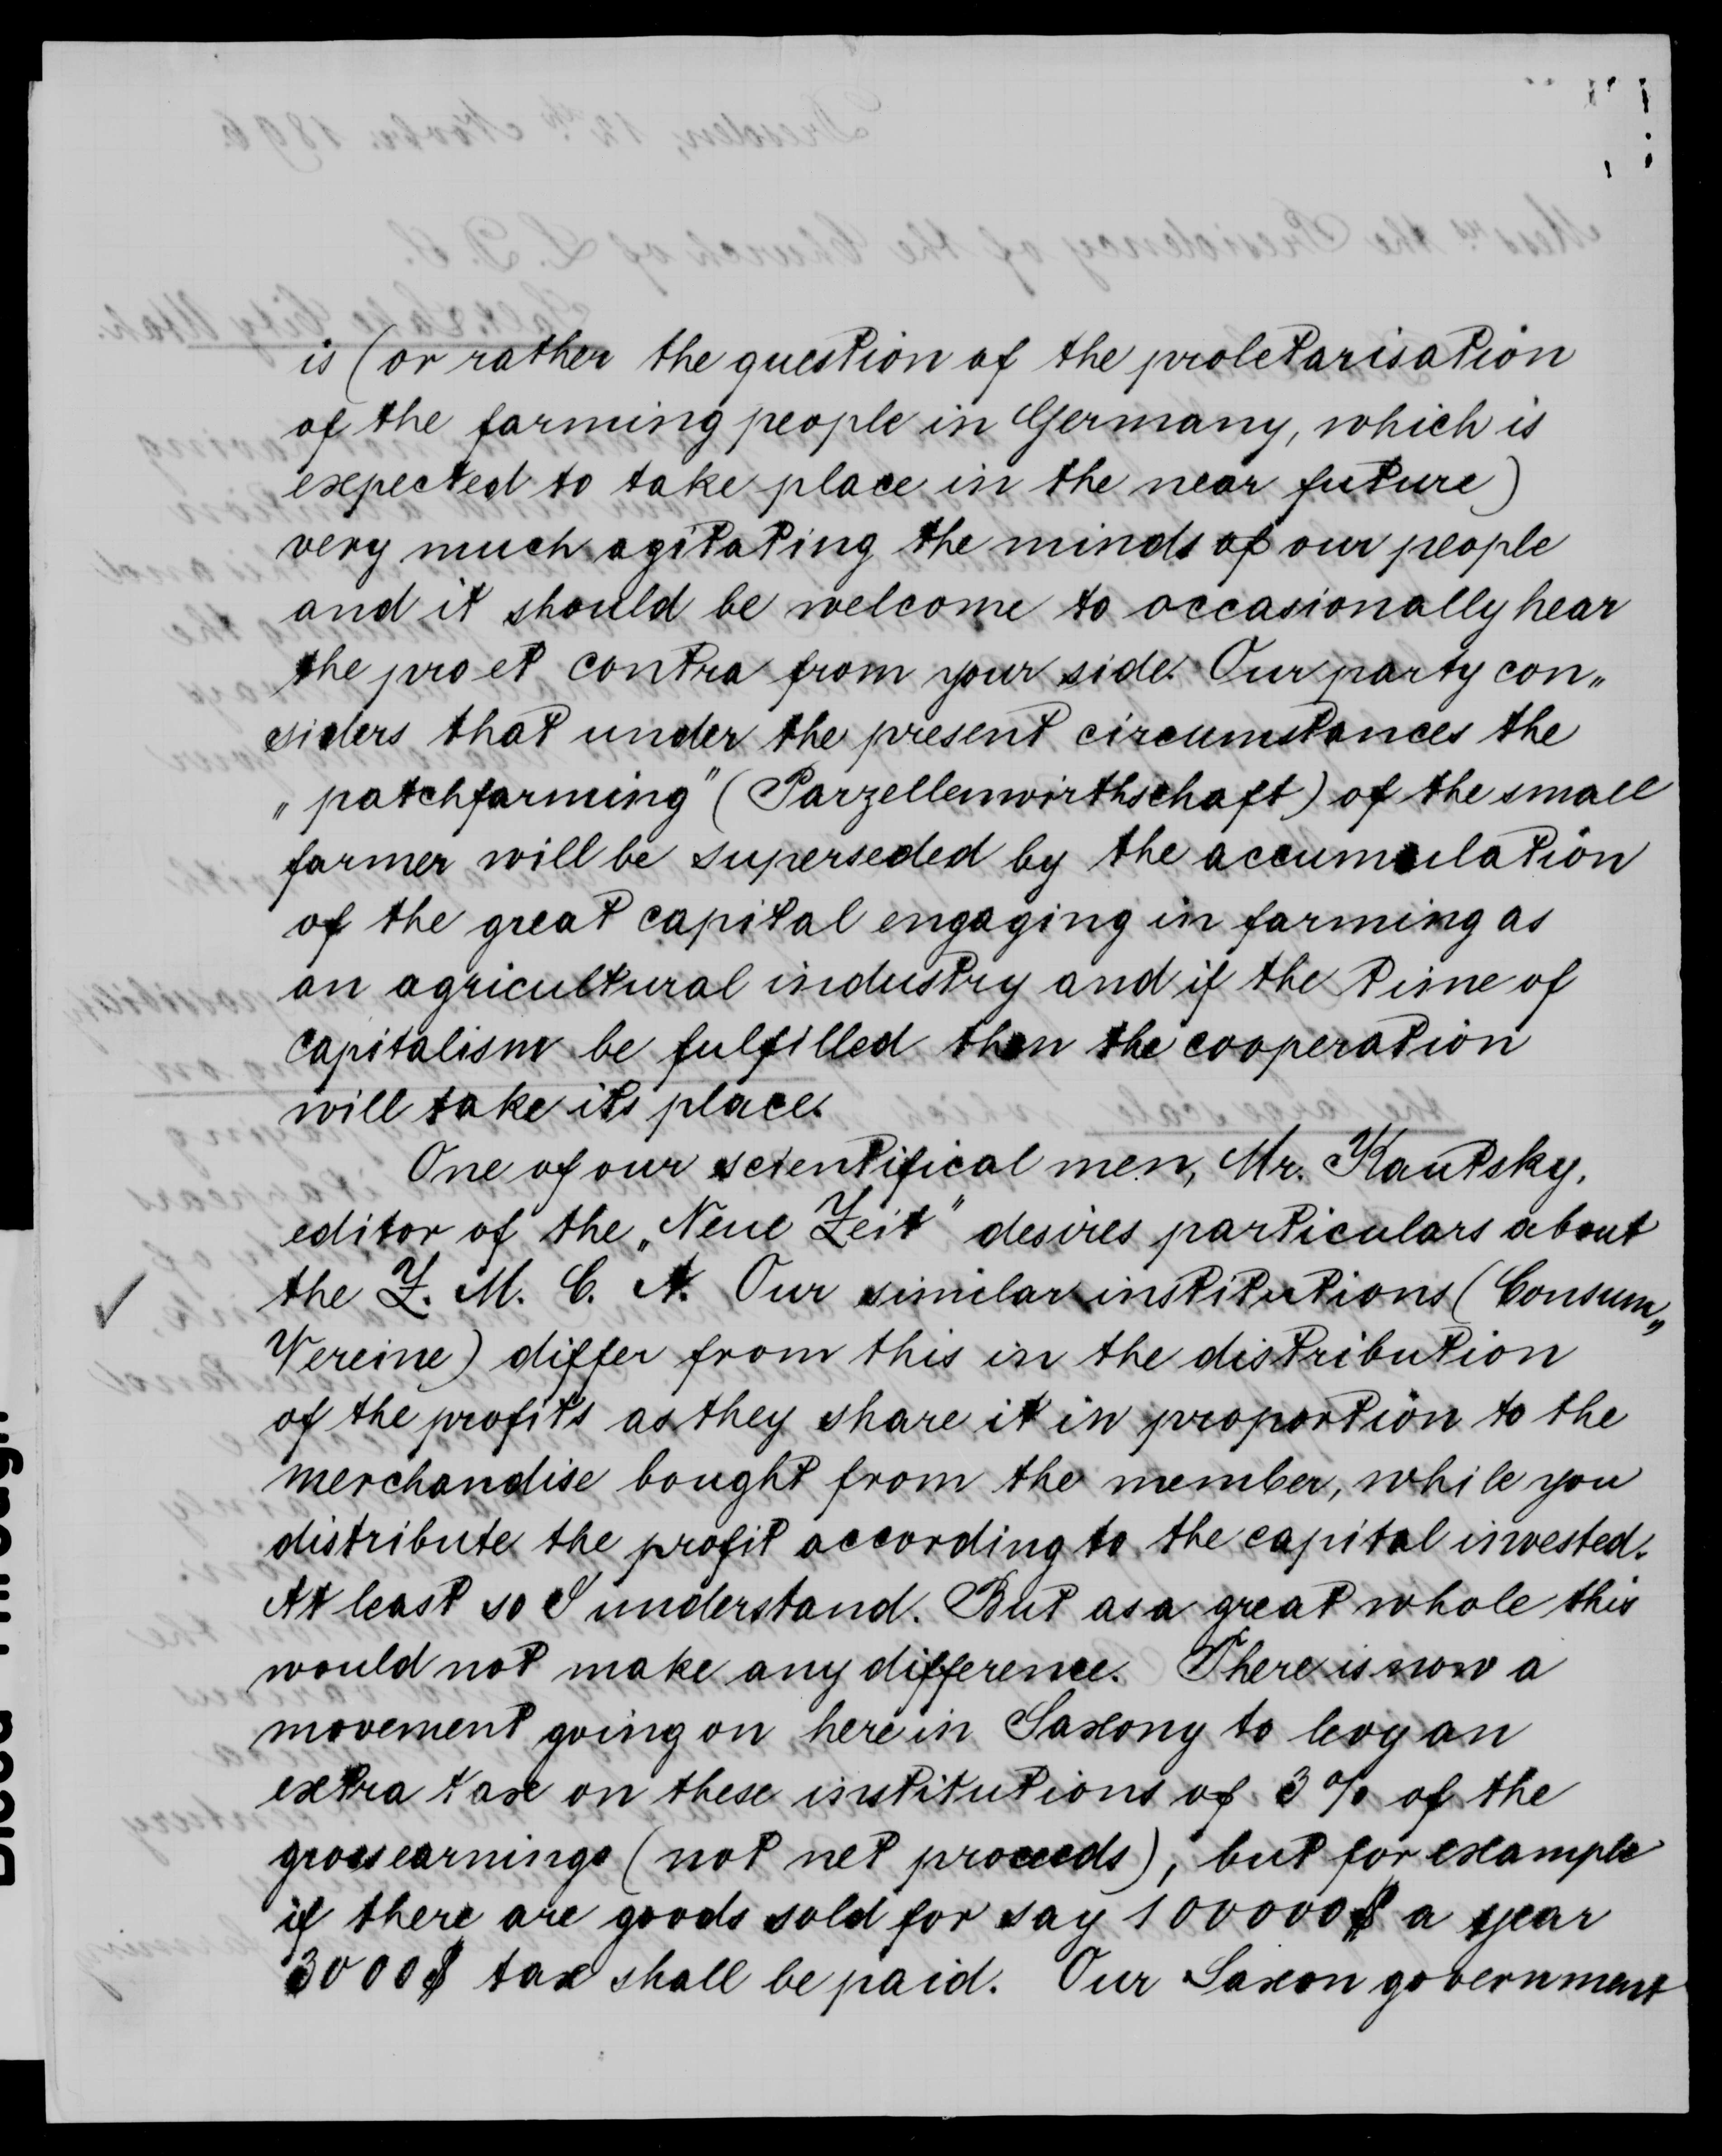 is (or rather the question of the proletarisation
of the farming people in Germany, which is
expected to take place in the near future)
very much agitating the minds of our people
and it should be welcome to occasionally hear
the pro et contra from your side. Our party con„
siders that under the present circumstances the
„patchfarming" (Parzellenwirthschaft) of the small
farmer will be superseded by the accumulation
of the great capital engaging in farming as
an agricultural industry and if the time of
capitalism be fulfilled then the cooperation
will take its place.
One of our scientifical men, Mr. Kautsky,
editor of the „Neue Zeit" desires particulars about
the Z. M. C. A. Our similar institutions (Consum„
Vereine) differ from this in the distribution
of the profits as they share it in proportion to the
merchandise bought from the member, while you
distribute the profit according to the capital invested.
At least so I understand. But as a great whole this
would not make any difference. There is now a
movement going on here in Saxony to levy an
extra tax on these institutions of 3% of the
gross earnings (not net proceeds), but for example
if there are goods sold for say 100000$ a year
3000$ tax shall be paid. Our Saxon government
Dresden, 12th Novbr. 1896.
Messrs the Presidency of the Church of L. D. S.
Salt Lake City Utah.